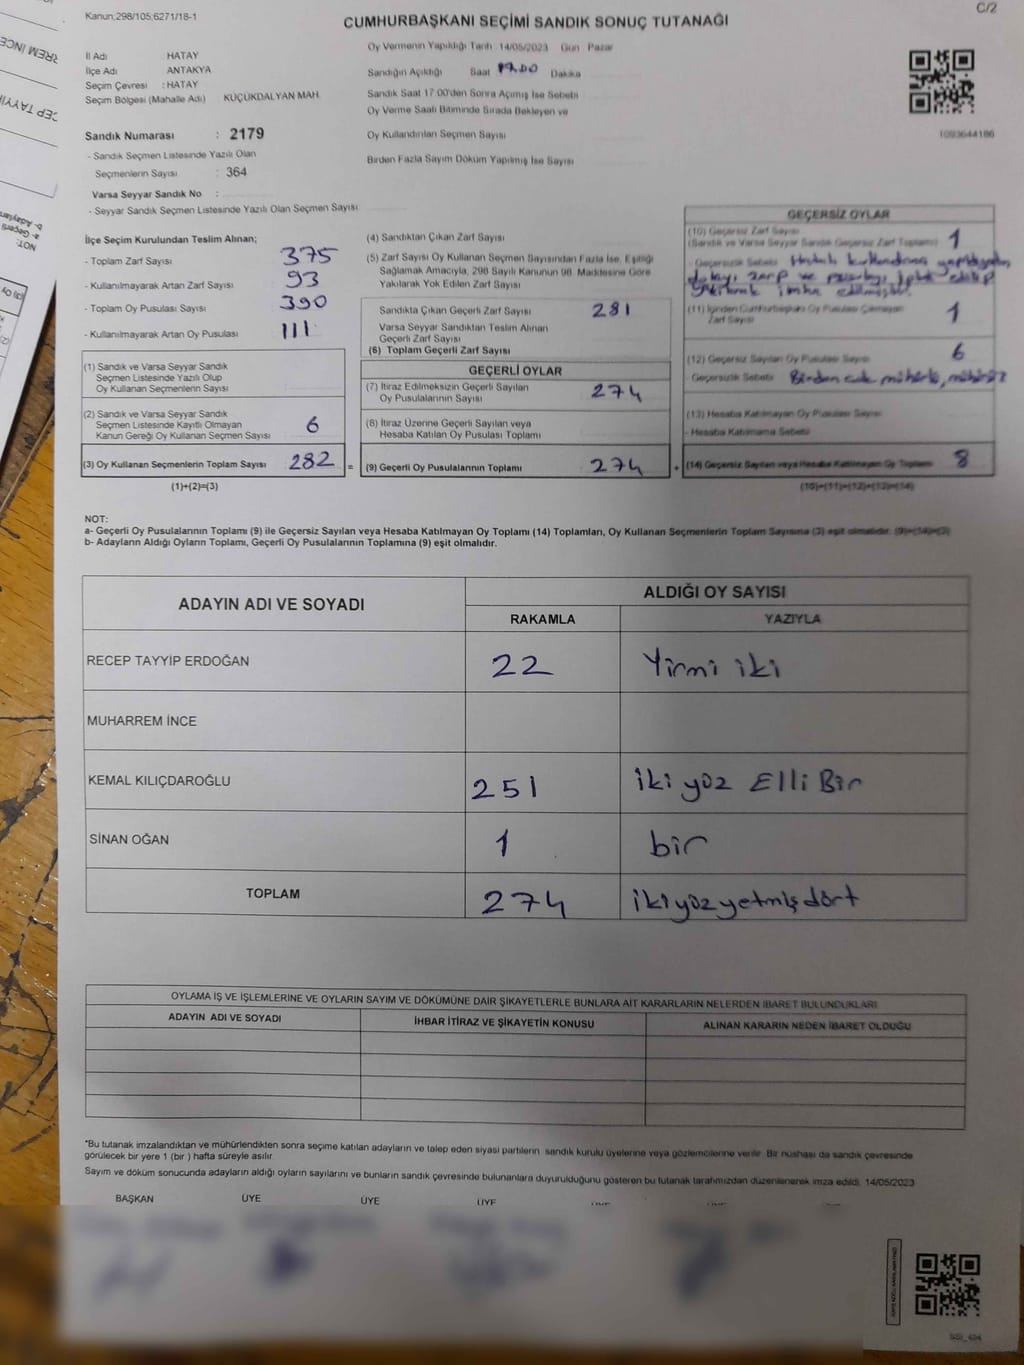 Kanun;298/105;6271/18-1
C/2
CUMHURBAŞKANI SEÇİMİ SANDIK SONUÇ TUTANAĞI
Oy Vermenin Yapıldığı Tarih :14/05/2023 Gün Pazar
İl Adı : HATAY
İlçe Adı : ANTAKYA
Seçim Çevresi : HATAY
Seçim Bölgesi (Mahalle Adı) : KÜÇÜKDALYAN MAH.
Sandığın Açıldığı Saat Dakika
Sandık Saat 17:00'den Sonra Açımış İse Sebebi
Oy Verme Saati Bitiminde Sırada Bekleyen ve
Oy Kullandırılan Seçmen Sayısı
Birden Fazla Sayım Döküm Yapılmış İse Sayısı
1093644186
Sandık Numarası : 2179
- Sandık Seçmen Listesinde Yazılı Olan
Seçmenlerin Sayısı : 364
Varsa Seyyar Sandık No :
- Seyyar Sandık Seçmen Listesinde Yazılı Olan Seçmen Sayısı
İlçe Seçim Kurulundan Teslim Alınan;
- Toplam Zarf Sayısı 375
- Kullanılmayarak Artan Zarf Sayısı 93
- Toplam Oy Pusulası Sayısı 390
- Kullanılmayarak Artan Oy Pusulası 111
(1) Sandık ve Varsa Seyyar Sandık
Seçmen Listesinde Yazılı Olup
Oy Kullanan Seçmenlerin Sayısı
(2) Sandık ve Varsa Seyyar Sandık
Seçmen Listesinde Kayıtlı Olmayan
Kanun Gereği Oy Kullanan Seçmen Sayısı 6
(3) Oy Kullanan Seçmenlerin Toplam Sayısı 282 =
(1)+(2)=(3)
(4) Sandıktan Çıkan Zarf Sayısı
(5) Zarf Sayısı Oy Kullanan Seçmen Sayısından Fazla İse, Eşitliği
Sağlamak Amacıyla, 298 Sayılı Kanunun 98. Maddesine Göre
Yakılarak Yok Edilen Zarf Sayısı
Sandıkta Çıkan Geçerli Zarf Sayısı 281
Varsa Seyyar Sandıktan Teslim Alınan
Geçerli Zarf Sayısı
(6) Toplam Geçerli Zarf Sayısı
GEÇERLİ OYLAR
(7) İtiraz Edilmeksizin Geçerli Sayılan
Oy Pusulalarının Sayısı 274
(8) İtiraz Üzerine Geçerli Sayılan veya
Hesaba Katılan Oy Pusulası Toplamı
(9) Geçerli Oy Pusulalarının Toplamı 274 +
GEÇERSİZ OYLAR
(10) Geçersiz Zarf Sayısı
(Sandık ve Varsa Seyyar Sandık Geçersiz Zarf Toplamı) 1
- Geçersizlik Sebebi Hatalı kullandırma
dolayı zarf ve pusulayı iptal edilip
imha edilmiştir.
(11) İçinden Cumhurbaşkanı Oy Pusulası Çıkmayan
Zarf Sayısı 1
(12) Geçersiz Sayılan Oy Pusulası Sayısı 6
- Geçersizlik Sebebi Birden çok mühürlü, mühürsüz
(13) Hesaba Katılmayan Oy Pusulası Sayısı
- Hesaba Katılmama Sebebi
(14) Geçersiz Sayılan veya Hesaba Katılmayan Oy Toplamı 8
(10)+(11)+(12)+(13)=(14)
NOT:
a- Geçerli Oy Pusulalarının Toplamı (9) ile Geçersiz Sayılan veya Hesaba Katılmayan Oy Toplamı (14) Toplamları, Oy Kullanan Seçmenlerin Toplam Sayısına (3) eşit olmalıdır. (9)+(14)=(3)
b- Adayların Aldığı Oyların Toplamı, Geçerli Oy Pusulalarının Toplamına (9) eşit olmalıdır.
ADAYIN ADI VE SOYADI
ALDIĞI OY SAYISI
RAKAMLA YAZIYLA
RECEP TAYYİP ERDOĞAN 22 Yirmi iki
MUHARREM İNCE
KEMAL KILIÇDAROĞLU 251 iki yüz Elli Bir
SİNAN OĞAN 1 bir
TOPLAM 274 ikiyüzyetmişdört
OYLAMA İŞ VE İŞLEMLERİNE VE OYLARIN SAYIM VE DÖKÜMÜNE DAİR ŞİKAYETLERLE BUNLARA AİT KARARLARIN NELERDEN İBARET BULUNDUKLARI
ADAYIN ADI VE SOYADI İHBAR İTİRAZ VE ŞİKAYETİN KONUSU ALINAN KARARIN NEDEN İBARET OLDUĞU
*Bu tutanak imzalandıktan ve mühürlendikten sonra seçime katılan adayların ve talep eden siyasi partilerin sandık kurulu üyelerine veya gözlemcilerine verilir. Bir nüshası da sandık çevresinde
görülecek bir yere 1 (bir ) hafta süreyle asılır.
Sayım ve döküm sonucunda adayların aldığı oyların sayılarını ve bunların sandık çevresinde bulunanlara duyurulduğunu gösteren bu tutanak tarafımızdan düzenlenerek imza edildi. 14/05/2023
BAŞKAN ÜYE ÜYE ÜYE